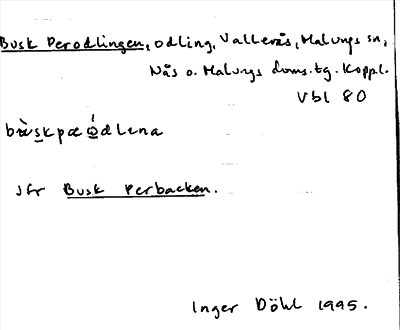 Busk Perodlingen, odling, Vallerås, Malungs sn,
Nås o. Malungs doms. tg. Koppl.
Vbl 80
Jfr Busk Perbacken.
Inger Döhl 1995.